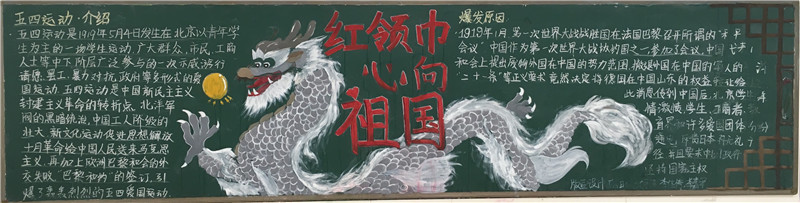 五四运动·介绍
五四运动是1919年5月4日发生在北京以青年学
生为主的一场学生运动,广大群众,市民,工商
人士等中下阶层广泛参与的一次示威游行
请愿.罢工.暴力对抗政府等多形式的爱
国运动.五四运动是中国新民主主义
封建主义革命的转折点.北洋军
阀的黑暗统治.中国工人阶级的
壮大.新文化运动促进思想解放
十月革命给中国人民送来马克思
主义.再加上欧洲巴黎和会的外
交失败."巴黎和约"的签订.引
爆了轰轰烈烈的五四爱国运动.
红领巾
心向
祖国
爆发原因
1919年1月第一次世界大战战胜国在法国巴黎召开所谓的"和平
会议"中国作为第一次世界大战协约国之一,参加了会议,中国
和会上提出废除外国在中国的势力范围.撤退外国在中国的军人的
"二十一条"等正义要求竟然决定将德国在中国山东的权益
此消息传到中国后.北京学
情激愤.学生.工商者.
爱国团体
日本
主权
版面设计